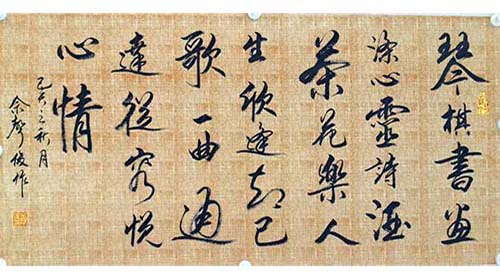 琴棋書畫
滌心靈詩酒
茶花樂人
生欣逢知己
歌一曲通
達從容悅
心情
己亥之秋月
作